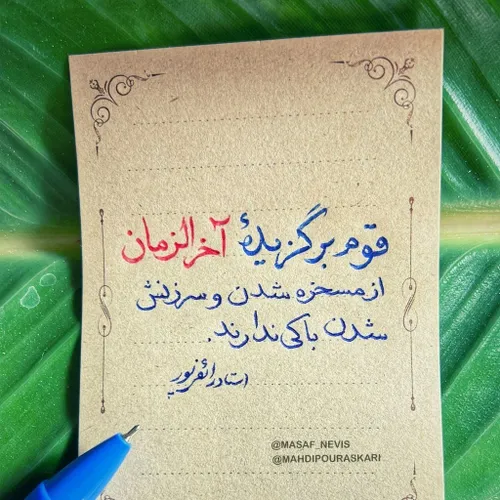 قوم برگزیدهٔ آخرالزمان
از مسخره شدن و سرزنش
شدن باکی ندارند.
استاد رائفی‌پور
@MASAF_NEVIS
@MAHDIPOURASKARI